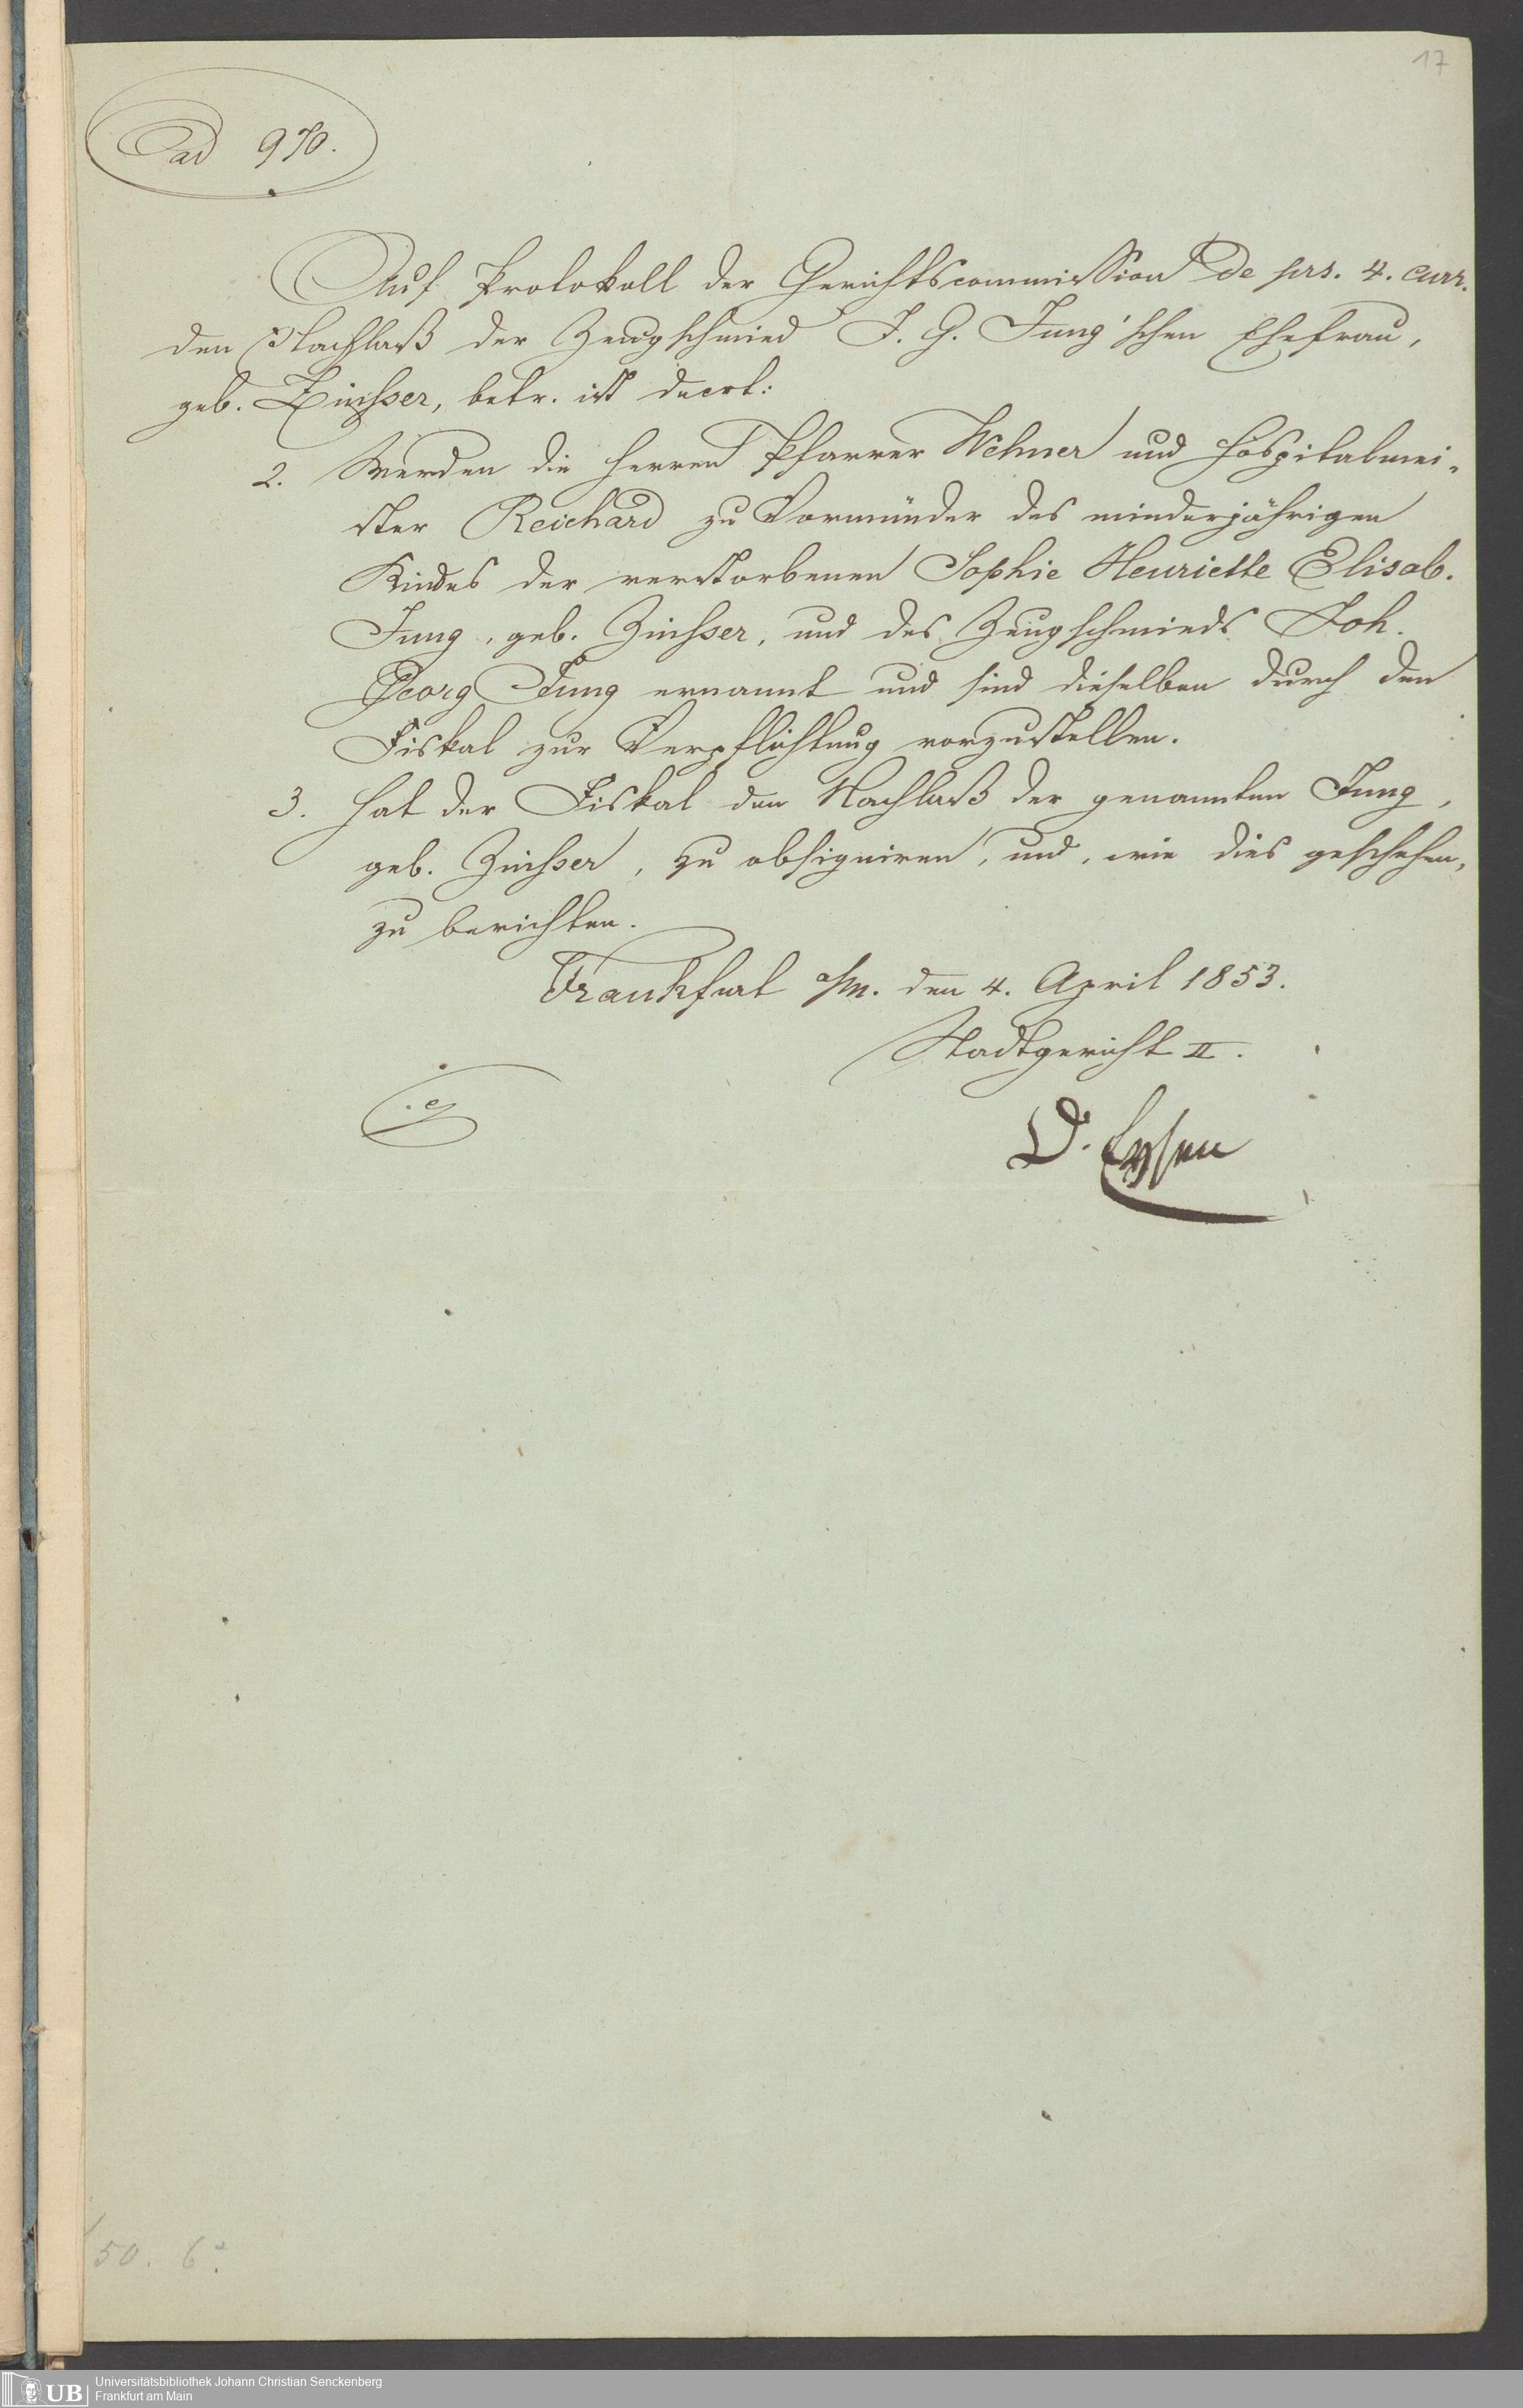 17
ad 970.
Auf Protokoll der Gerichtscommission de prs. 4. curr.
den Nachlaß der Zeugschmied J. G. Jung'schen Ehefrau,
geb. Zinsser, betr. ist decrt:
2. Werden die Herren Pfarrer Wehner und Hospitalmei-
ster Reichard zu Vormünder des minderjährigen
Kindes der verstorbenen Sophie Henriette Elisab.
Jung, geb. Zinsser, und des Zeugschmieds Joh.
Georg Jung ernannt und sind dieselben durch den
Fiskal zur Verpflichtung vorzustellen.
3. Hat der Fiskal den Nachlaß der genannten Jung,
geb. Zinsser, zu obsigniren, und, wie dies geschehen,
zu berichten.
Frankfurt a/m. den 4. April 1853.
Stadtgericht II.
D. Eysen
50. 6.
UB Universitätsbibliothek Johann Christian Senckenberg
Frankfurt am Main